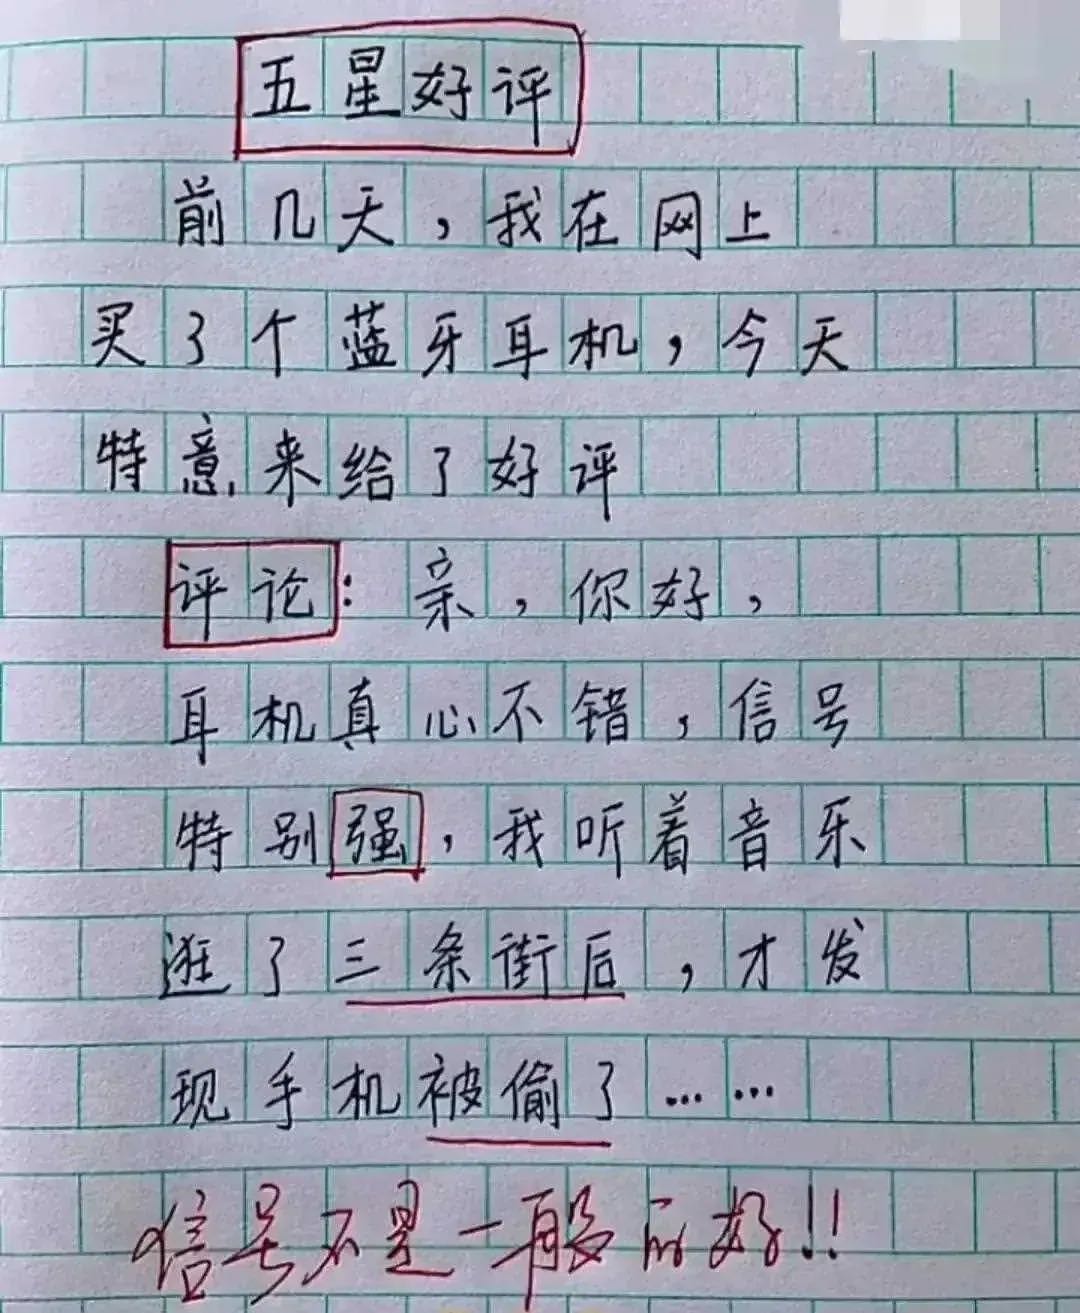 五星好评
前几天，我在网上
买了个蓝牙耳机，今天
特意来给了好评
评论：亲，你好，
耳机真心不错，信号
特别强，我听着音乐
逛了三条街后，才发
现手机被偷了……
信号不是一般的好!!